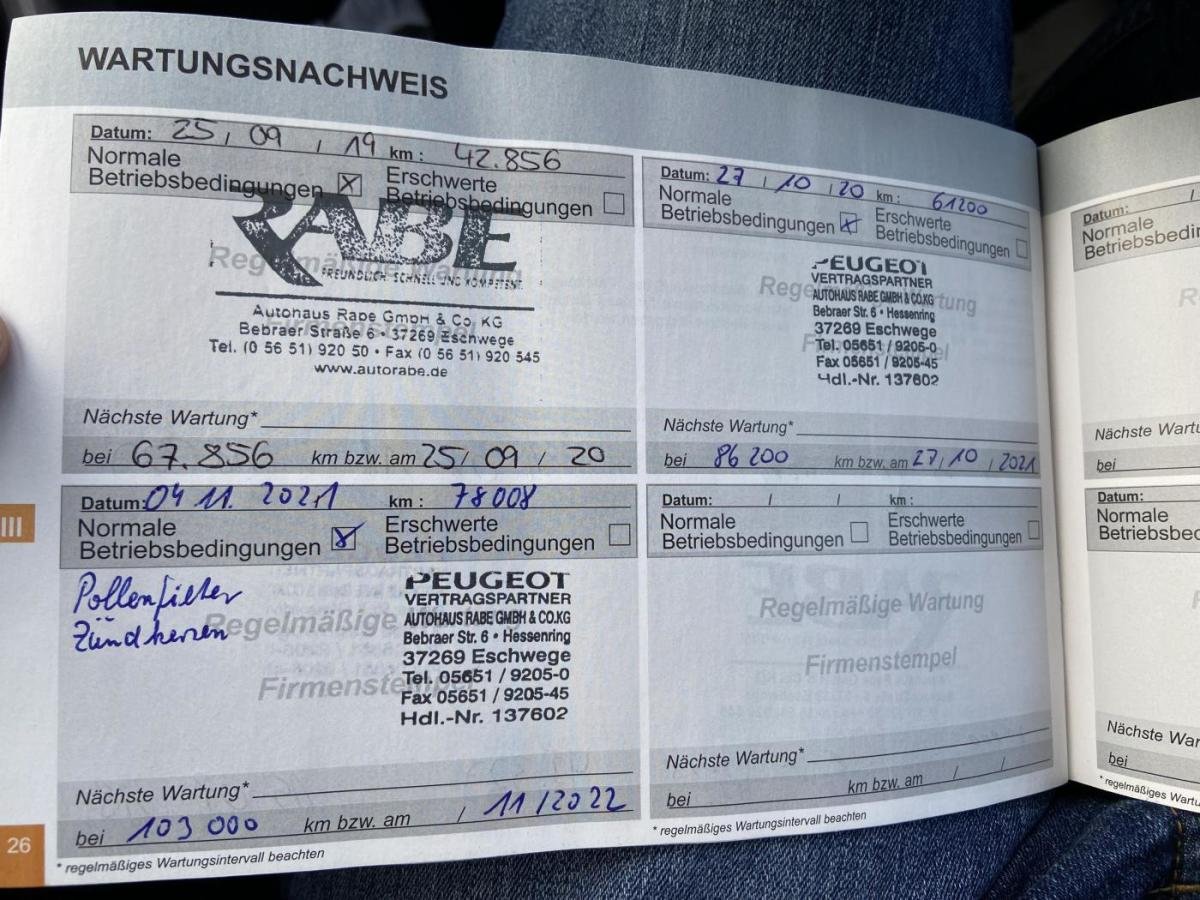 WARTUNGSNACHWEIS
Datum: 25 / 09 / 19 km : 42.856
Normale
Betriebsbedingungen ☒
Erschwerte
Betriebsbedingungen ☐
RABE
FREUNDLICH. SCHNELL UND KOMPETENT.
Regelmäßige Wartung
Firmenstempel
Autohaus Rabe GmbH & Co. KG
Bebraer Straße 6 • 37269 Eschwege
Tel. (0 56 51) 920 50 • Fax (0 56 51) 920 545
www.autorabe.de
Nächste Wartung*
bei 67.856 km bzw. am 25/ 09 / 20
Datum: 27 / 10 / 20 km : 61200
Normale
Betriebsbedingungen ☒
Erschwerte
Betriebsbedingungen ☐
Regelmäßige Wartung
Firmenstempel
PEUGEOT
VERTRAGSPARTNER
AUTOHAUS RABE GMBH & CO.KG
Bebraer Str. 6 • Hessenring
37269 Eschwege
Tel. 05651 / 9205-0
Fax 05651 / 9205-45
Hdl.-Nr. 137602
Nächste Wartung*
bei 86 200 km bzw. am 27/ 10 / 2021
Datum: 04 11. 2021 km : 78008
Normale
Betriebsbedingungen ☒
Erschwerte
Betriebsbedingungen ☐
Pollenfilter
Zündkerzen
Regelmäßige Wartung
Firmenstempel
PEUGEOT
VERTRAGSPARTNER
AUTOHAUS RABE GMBH & CO.KG
Bebraer Str. 6 • Hessenring
37269 Eschwege
Tel. 05651 / 9205-0
Fax 05651 / 9205-45
Hdl.-Nr. 137602
Nächste Wartung*
bei 103 000 km bzw. am / 11 / 2022
* regelmäßiges Wartungsintervall beachten
Datum: / / km :
Normale
Betriebsbedingungen ☐
Erschwerte
Betriebsbedingungen ☐
Regelmäßige Wartung
Firmenstempel
Nächste Wartung*
bei km bzw. am / /
* regelmäßiges Wartungsintervall beachten
III
26
Datum: /
Normale
Betriebsbedin
R
Nächste Wartu
bei
Datum:
Normale
Betriebsbed
Nächste War
bei
* regelmäßiges W